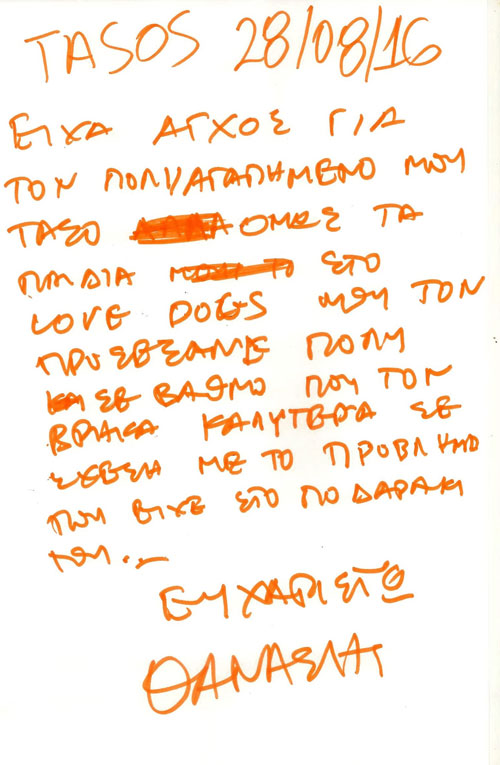 TASOS 28/08/16
ΕΙΧΑ ΑΓΧΟΣ ΓΙΑ
ΤΟΝ ΠΟΛΥΑΓΑΠΗΜΕΝΟ ΜΟΥ
ΤΑΣΟ ΟΜΩΣ ΤΑ
ΠΑΙΔΙΑ ΣΤΟ
LOVE DOGS ΜΟΥ ΤΟΝ
ΠΡΟΣΕΞΑΝΕ ΠΟΛΥ
ΣΕ ΒΑΘΜΟ ΠΟΥ ΤΟΝ
ΒΡΗΚΑ ΚΑΛΥΤΕΡΑ ΣΕ
ΣΧΕΣΗ ΜΕ ΤΟ ΠΡΟΒΛΗΜΑ
ΠΟΥ ΕΙΧΕ ΣΤΟ ΠΟΔΑΡΑΚΙ
ΤΟΥ..
ΕΥΧΑΡΙΣΤΩ
ΘΑΝΑΣΗΣ